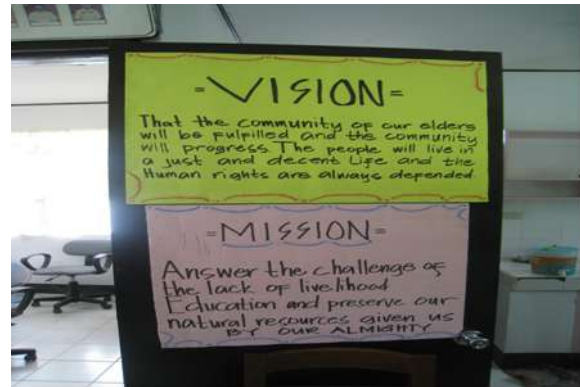 =VISION=
That the community of our elders
will be pulpilled and the community
will progress The people will live in
a just and decent Life and the
Human rights are always depended
=MISSION=
Answer the challenge of
the lack of livelihood
Education and preserve our
natural resources given us
BY OUR ALMIGHTY